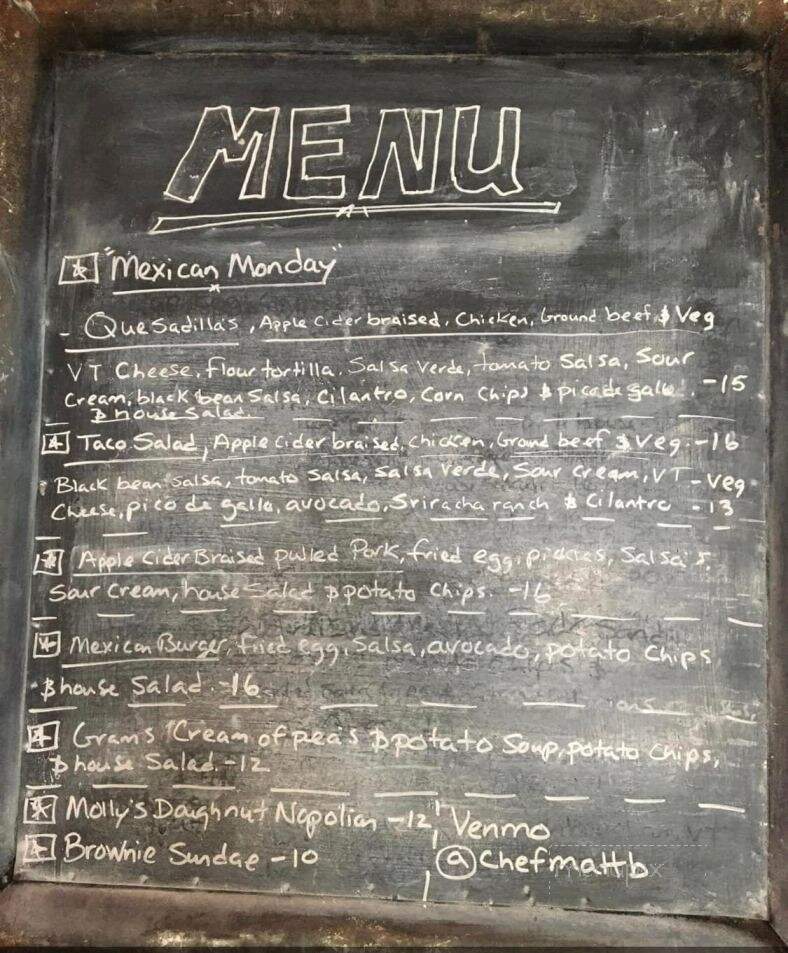 MENU
"Mexican Monday"
- Quesadillas, Apple Cider braised, Chicken, Ground beef & Veg
VT Cheese, flour tortilla, Salsa Verde, tomato Salsa, Sour
Cream, black bean Salsa, Cilantro, Corn Chips & pico de gallo. -15
& house Salad.
Taco Salad, Apple Cider braised, Chicken, Ground beef & Veg.-16
Black bean Salsa, tomato Salsa, Salsa Verde, Sour Cream, VT -Veg
Cheese, pico de gallo, avocado, Sriracha ranch & Cilantro -13
Apple Cider Braised pulled Pork, fried egg, pickles, Salsa's,
Sour Cream, house Salad & potato Chips. -16
Mexican Burger, fried egg, Salsa, avocado, potato Chips
& house Salad.-16
Gram's Cream of pea's & potato Soup, potato Chips,
& house Salad -12
Molly's Doughnut Napolian -12
Brownie Sundae -10
Venmo
@Chefmattb